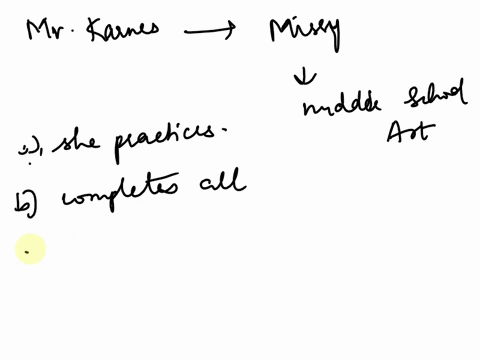 Mr. Karnes → Missy
↓
middle School
Art
a), she practices.
b) completes all